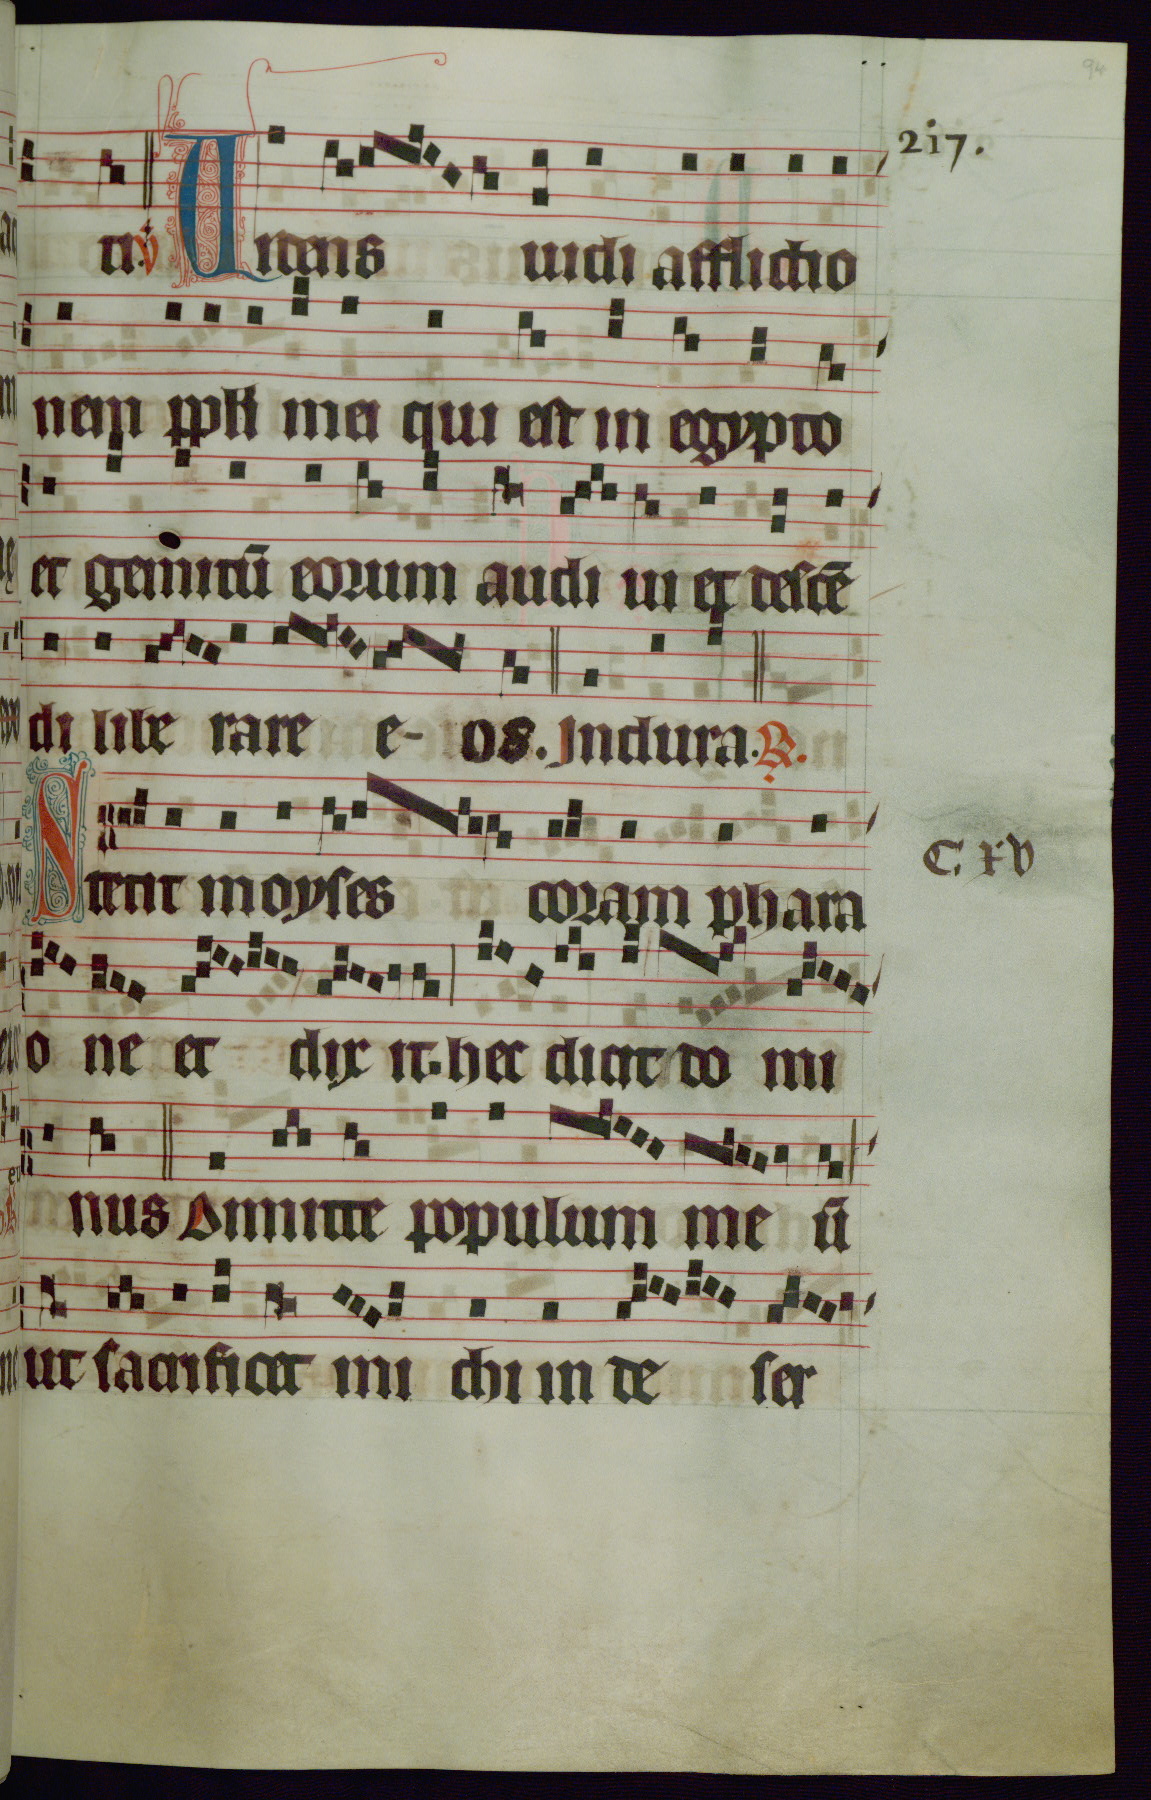 94
217.
ti. V Uidens uidi afflictio
nem ppli mei qui est in egypto
et gemitū eorum audi ui et descē
di libe rare e- os. Indura. R.
Stetit moyses coram phara
C. xv
o ne et dix it. hec dicit do mi
nus Dimitte populum me ū
ut sacrificet mi chi in de ser